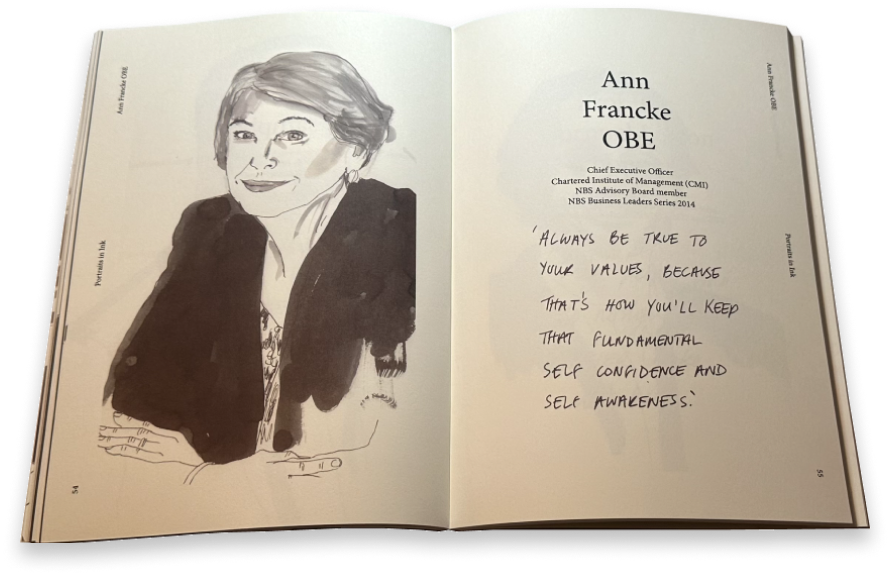 Ann Francke OBE
Portraits in Ink
54
Ann
Francke
OBE
Chief Executive Officer
Chartered Institute of Management (CMI)
NBS Advisory Board member
NBS Business Leaders Series 2014
'ALWAYS BE TRUE TO
YOUR VALUES, BECAUSE
THAT'S HOW YOU'LL KEEP
THAT FUNDAMENTAL
SELF CONFIDENCE AND
SELF AWARENESS.'
Ann Francke OBE
Portraits in Ink
55